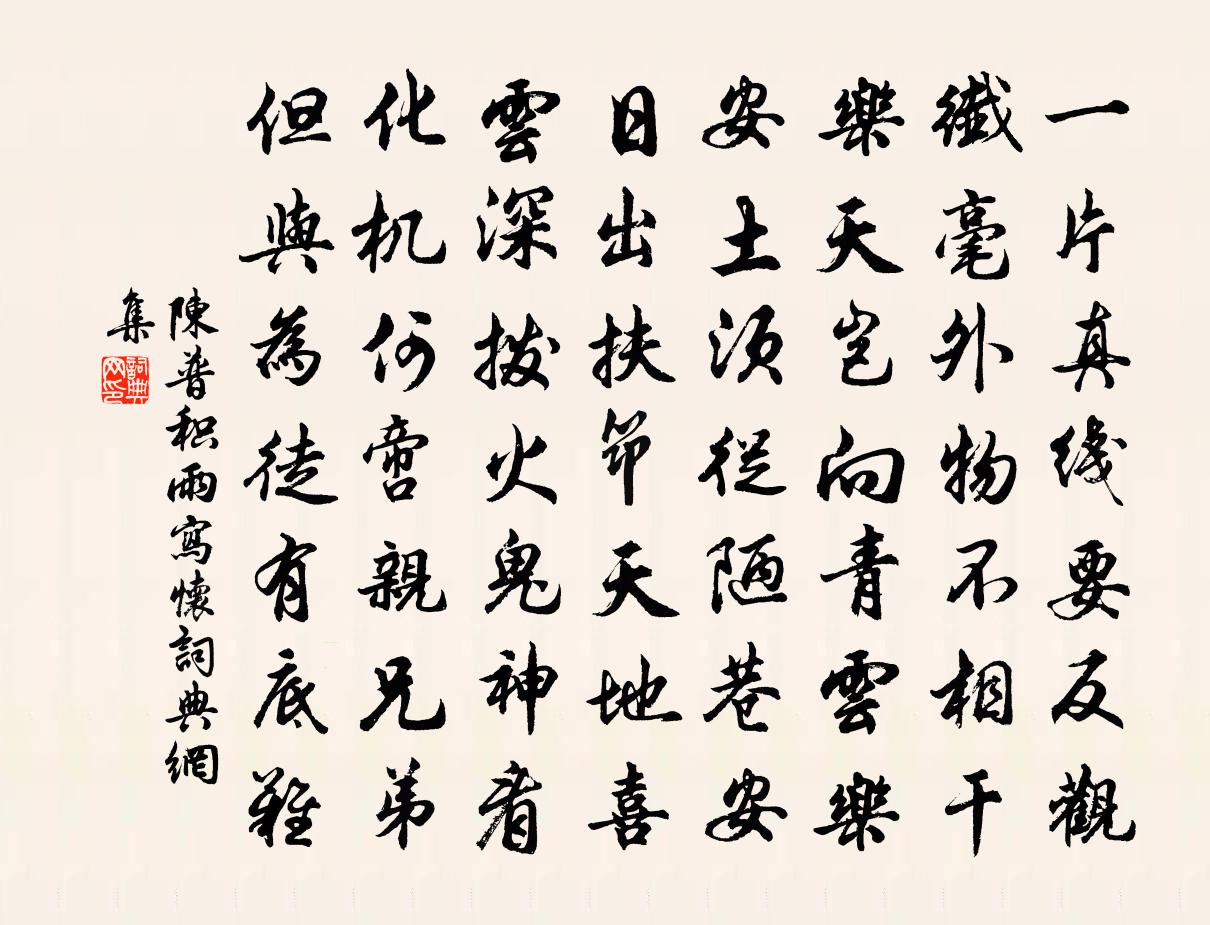 一片真线要反觀
纖毫外物不相干
樂天岂向青雲樂
安土须從陋巷安
日出扶筇天地喜
雲深拨火鬼神看
化机何啻親兄弟
但與為徒有底難
陳普积雨寫懷詞典網
集
詞典网印